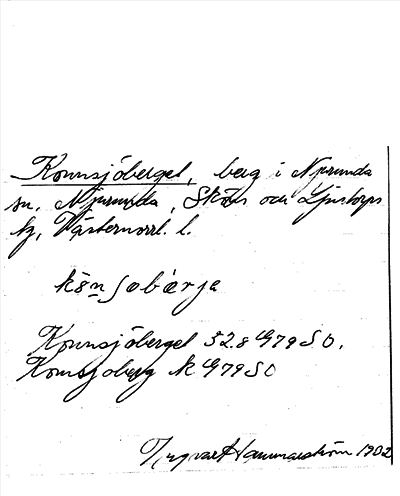 Kornsjöberget, berg i Njurunda
sn, Njurunda, Sköns och Ljustorps
tg, Västernorrl. l.
Kornsjöberget 32.8 G79 SO.
Kornsjoberg K G79 SO
Ingvar Hammarström 1902